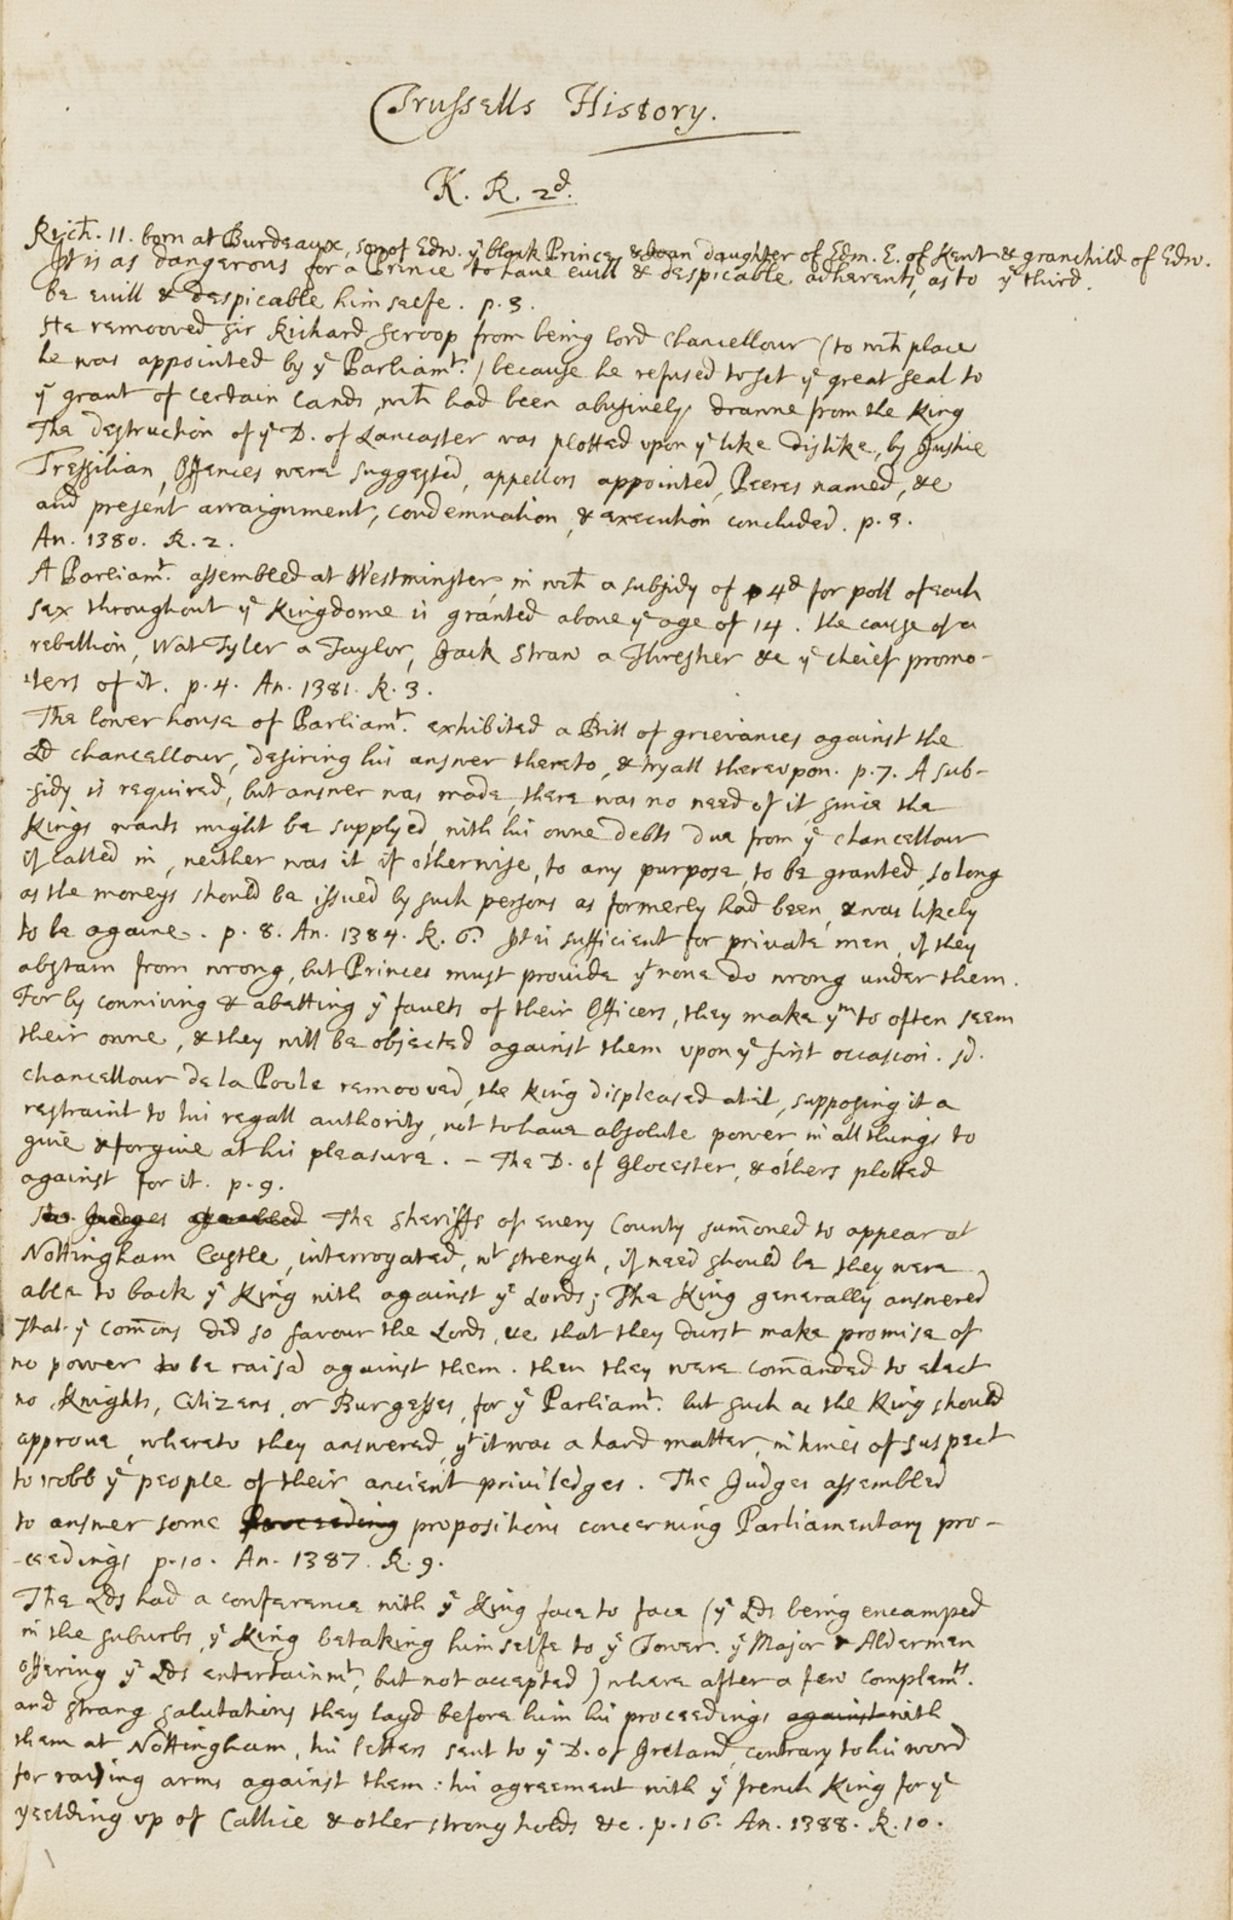 Trussells History.
K. R. 2d.
Rich. 11. born at Burdeaux, son of Edw. ye black Prince, & Joan daughter of Edm. E. of Kent & granchild of Edw.
ye third.
It is as dangerous for a Prince to have evill & despicable adherents, as to
be evill & despicable him selfe. p. 3.
He remooved Sir Richard Scroop from being lord Chancellour (to wch place
he was appointed by ye Parliamt.) because he refused to set ye great seal to
ye grant of certain lands wch had been abusively drawne from the King
The destruction of ye D. of Lancaster was plotted upon ye like dislike, by Justice
Tressilian, Offences were suggested, appellors appointed, Peeres named, &c
and present arraignment, condemnation, & execution concluded. p. 3.
An. 1380. R. 2.
A Parliamt. assembled at Westminster, in wch a subsidy of 4d for poll of each
sex throughout ye Kingdome is granted above ye age of 14. the cause of a
rebellion, Wat Tyler a Taylor, Jack Straw a Thresher &c ye cheief promo-
ters of it. p. 4. An. 1381. R. 3.
The lower house of Parliamt. exhibited a Bill of grievances against the
Ld chancellour, desiring his answer thereto, & tryall thereupon. p. 7. A sub-
-sidy is required, but answer was made, there was no need of it, since the
Kings wants might be supplyed, with his owne debts due from ye chancellour
if called in, neither was it if otherwise, to any purpose, to be granted, so long
as the moneys should be issued by such persons as formerly had been, & was likely
to be againe. p. 8. An. 1384. R. 6. It is sufficient for private men, if they
abstain from wrong, but Princes must provide yt none do wrong under them.
For by conniving & abetting ye faults of their Officers, they make ym to often seem
their owne, & they will be objected against them upon ye first occasion. Id.
Chancellour de la Poole remooved, the King displeased at it, supposing it a
restraint to his regall authority, not to have absolute power in all things to
give & forgive at his pleasure. - The D. of Glocester, & others plotted
against for it. p. 9.
The Judges assembled The Sheriffs of every County sumoned to appear at
Nottingham Castle, interrogated, wt strengh, if need should be, they were
able to back ye King with against ye Lords; The King generally answered
That ye Comons did so favour the Lords, &c that they durst make promise of
no power to be raisd against them. then they were comanded to elect
no Knights, Citizens, or Burgesses, for ye Parliamt. but such as the King should
approve, whereto they answered, yt it was a hard matter, in times of suspect
to robb ye people of their ancient priviledges. The Judges assembled
to answer some Proceeding propositions concerning Parliamentary pro-
-ceedings p. 10. An. 1387. R. 9.
The Lds had a conference with ye King face to face (ye Lds being encamped
in the suburbs, ye King betaking him selfe to ye Tower. ye Major & Aldermen
offering ye Lds entertainmt, but not accepted) where after a few complemts.
and strang salutations they layd before him his proceedings against with
them at Nottingham, his letters sent to ye D. of Ireland, contrary to his word
for raising arms against them: his agreement with ye french King for ye
yeelding up of Callice & other strong holds &c. p. 16. An. 1388. R. 10.